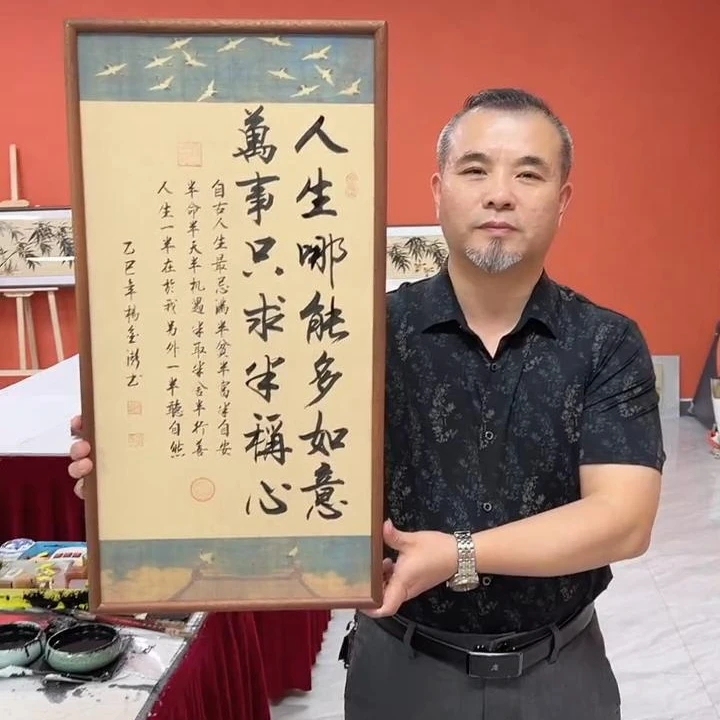 人生哪能多如意
萬事只求半稱心
自古人生最忌滿半貧半富半自安
半命半天半機遇半取半舍半行善
人生一半在於我另外一半聽自然
乙巳年楊金书